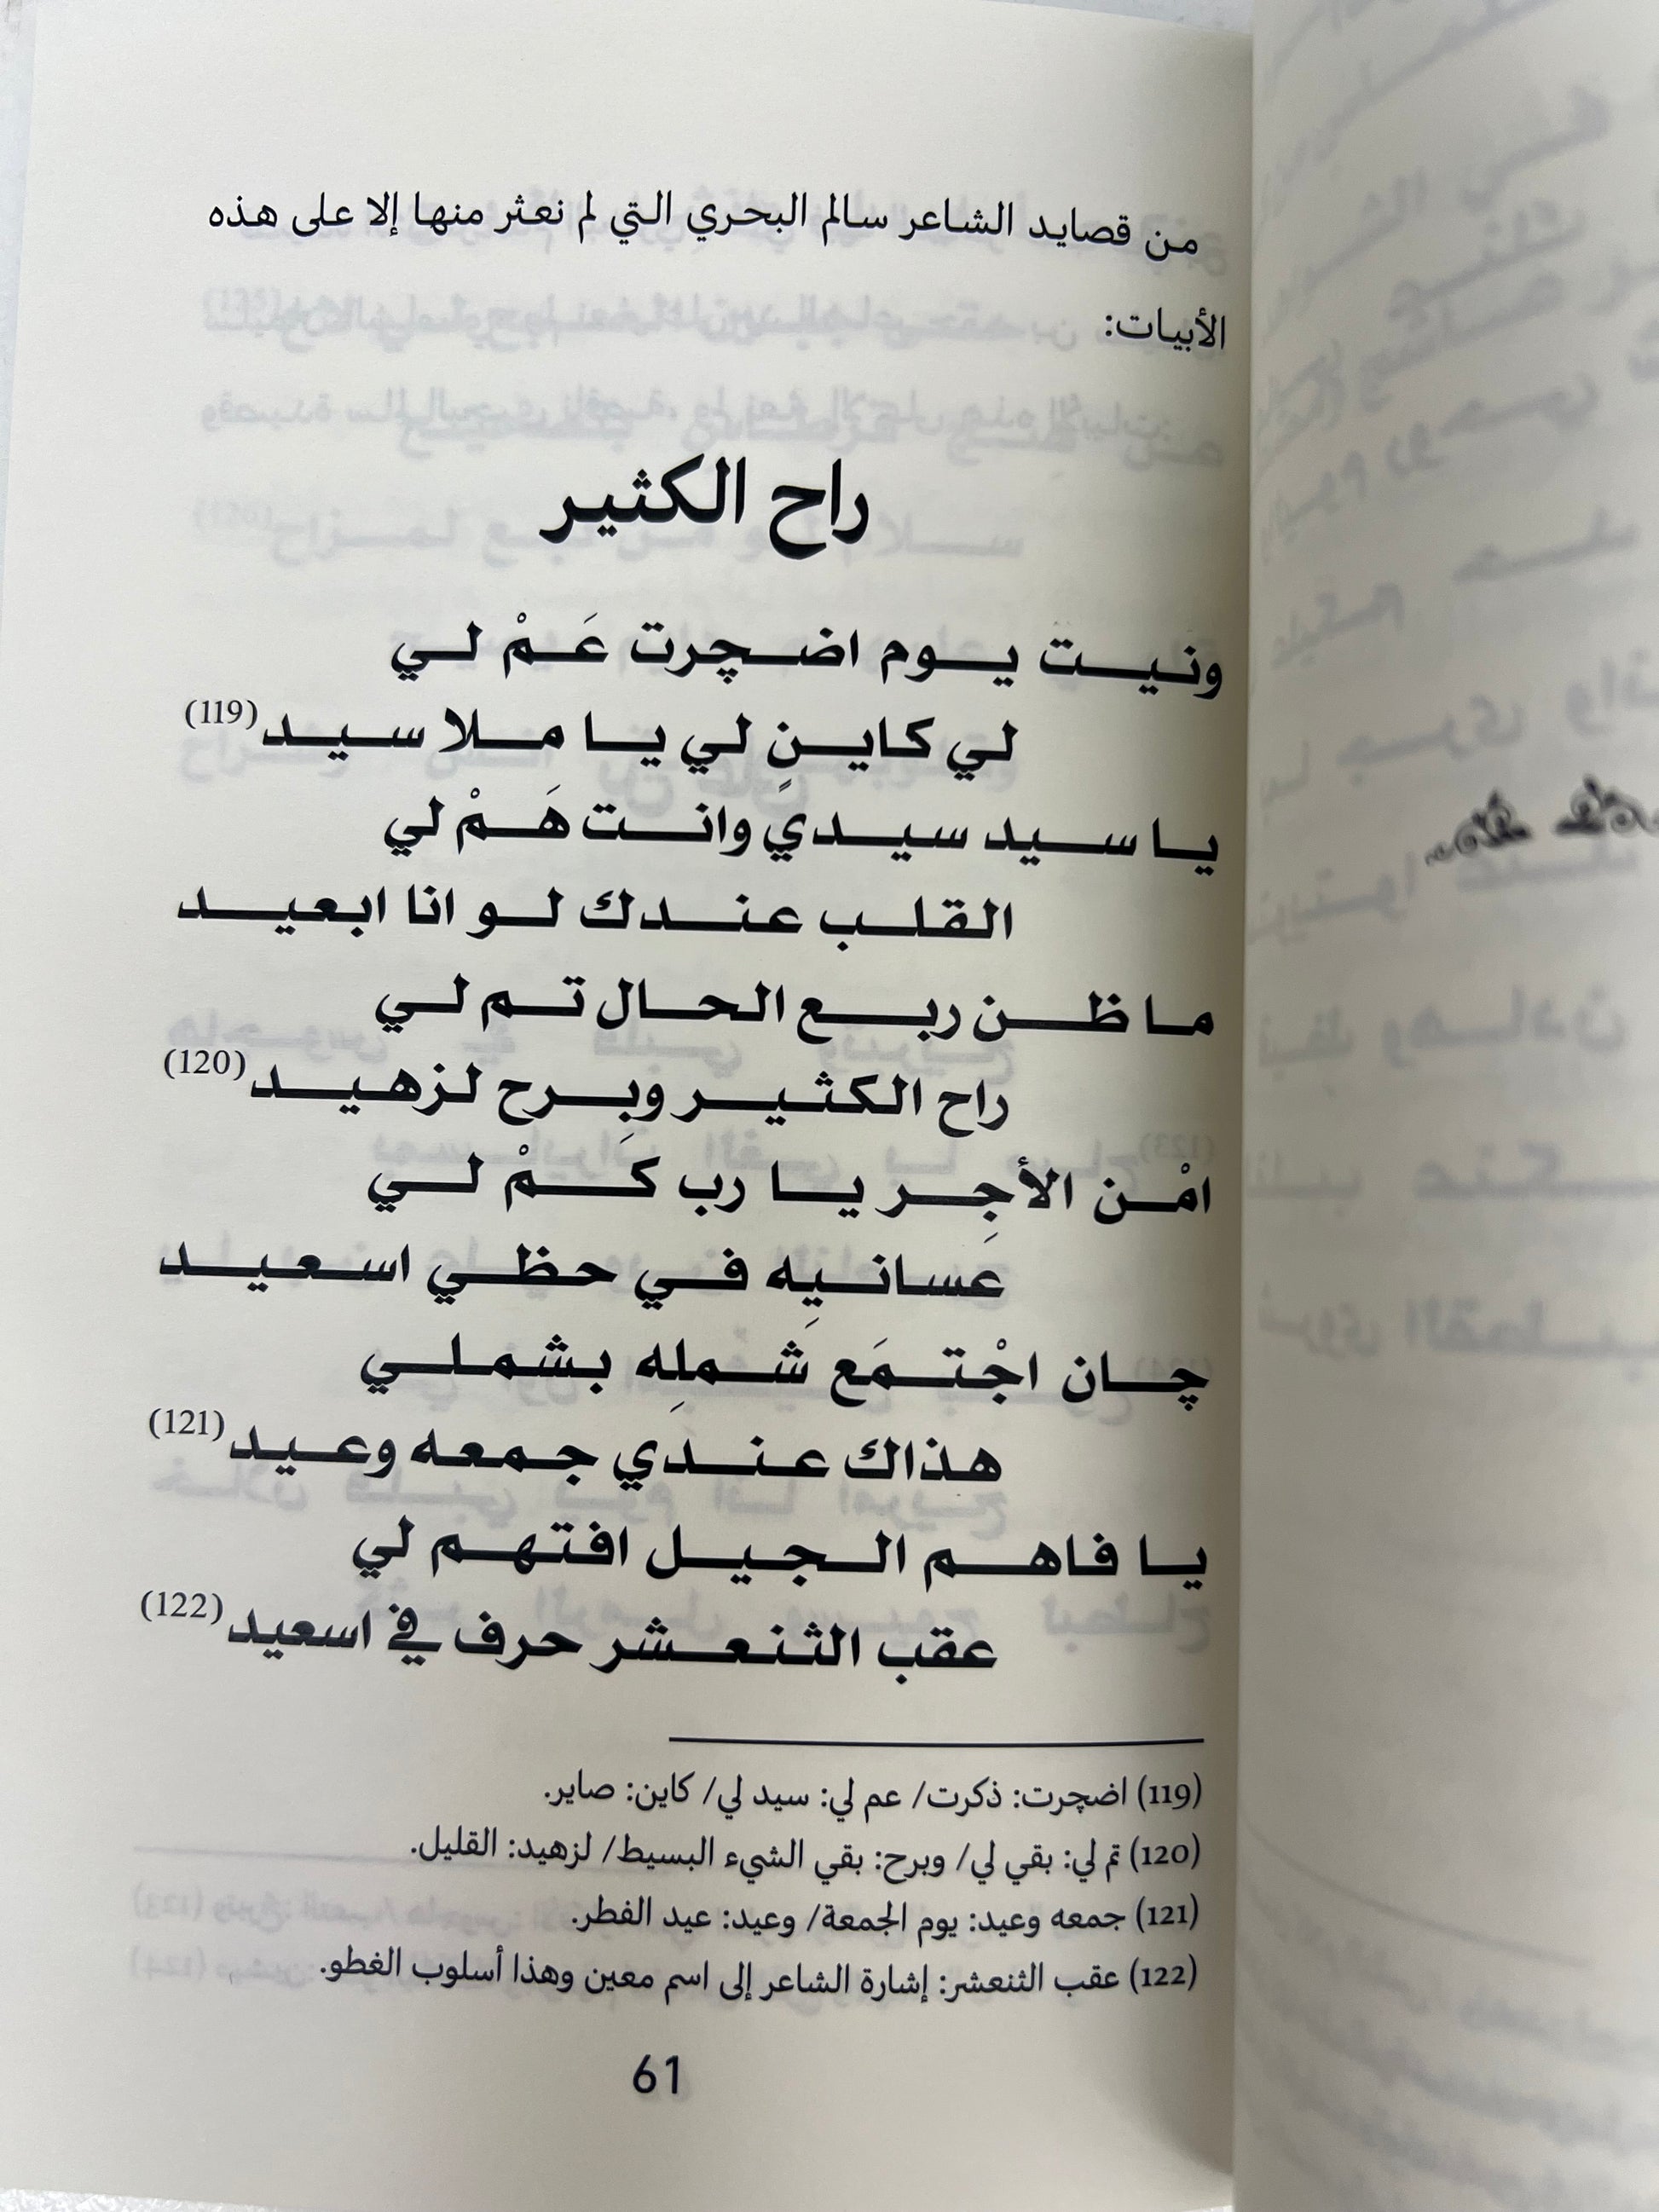 من قصايد الشاعر سالم البحري التي لم نعثر منها إلا على هذه
الأبيات:
راح الكثير
ونيت يوم اضچرت عَمْ لي
لي كاينٍ لي يا ملا سيد(119)
يا سيد سيدي وانت هَمْ لي
القلب عندك لو انا ابعيد
ما ظن ربع الحال تم لي
راح الكثير وبِرح لزهيد(120)
امْن الأجِر يا رب كمْ لي
عسانيِه في حظي اسعيد
چان اجْتمَع شملِه بشملي
هذاك عندي جمعه وعيد(121)
يا فاهم الجيل افتهم لي
عقب الثنعشر حرف في اسعيد(122)
(119) اضچرت: ذكرت/ عم لي: سيد لي/ كاين: صاير.
(120) تم لي: بقي لي/ وبرح: بقي الشيء البسيط/ لزهيد: القليل.
(121) جمعه وعيد: يوم الجمعة/ وعيد: عيد الفطر.
(122) عقب الثنعشر: إشارة الشاعر إلى اسم معين وهذا أسلوب الغطو.
61